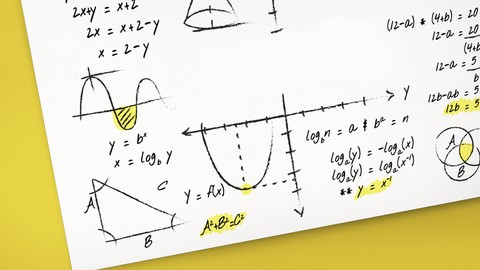 2x+y = x+2
2x = x+2-y
x = 2-y
y = bˣ
x = log_b y
A
C
B
Y
y = f(x)
A²+B²=C²
log_b n = a & bᵃ = n
logₐ(y) = -logₐ(x)
logₐ(y) = logₐ(x⁻¹)
** y = x⁻¹
(12-a) * (4+b) = 20
12-a = 20
(4+b
12-a = 5
b
12b-ab = 5
12b = 5
A
B